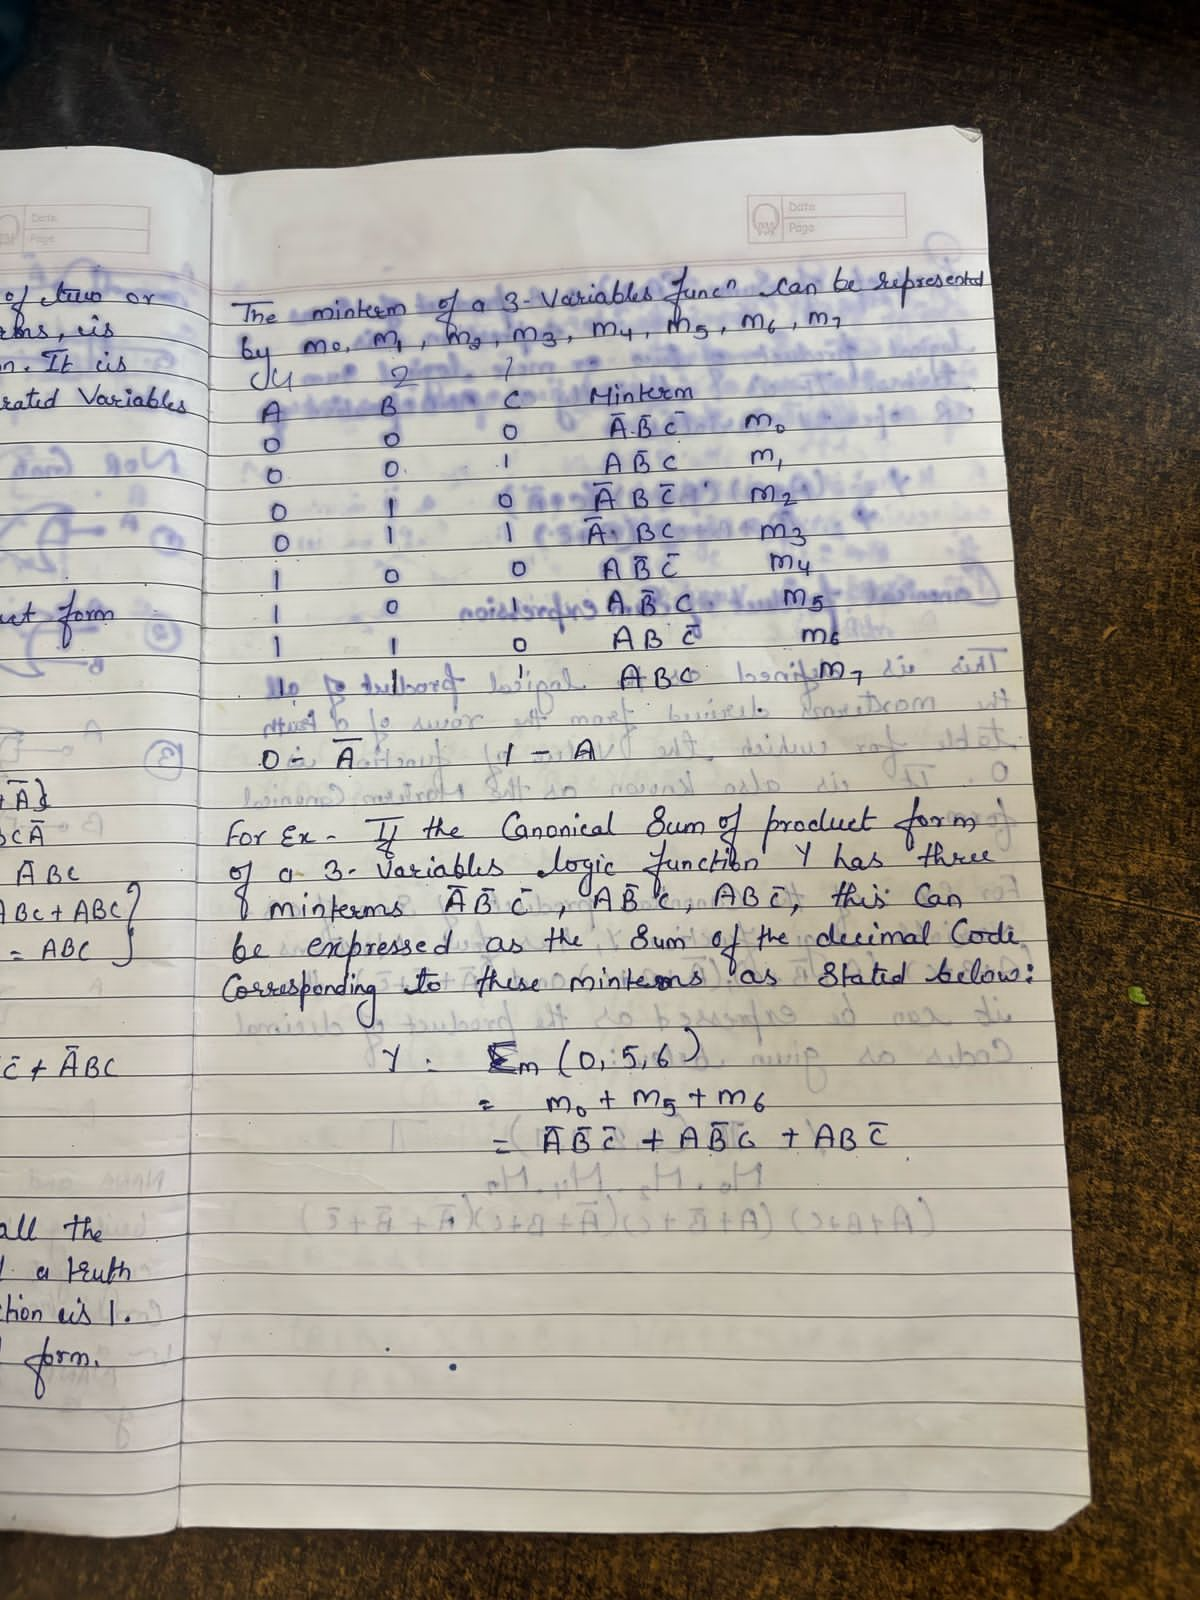 Date
Page
of two or
rms, is
n. It is
rated Variables
uct form
+ Ā}
BCĀ
ĀBC
ABC + ABC }
= ABC
C̄ + ĀBC
all the
a truth
ction is 1.
form.
Date
Page
The minterm of a 3-Variables funcⁿ can be represented
by m₀, m₁, m₂, m₃, m₄, m₅, m₆, m₇
4 2 1
A B C Minterm
0 0 0 Ā.B̄C̄ m₀
0 0 1 AB̄C m₁
0 1 0 ĀBC̄ m₂
0 1 1 Ā.BC m₃
1 0 0 AB̄C̄ m₄
1 0 1 AB̄C m₅
1 1 0 ABC̄ m₆
1 1 1 ABC m₇
0 - Ā 1 - A
For Ex - If the Canonical Sum of product form
of a 3-Variables logic function Y has three
minterms ĀB̄C̄, AB̄C, ABC̄, this Can
be expressed as the Sum of the decimal Code
Corresponding to these minterms as Stated below:
Y = Σm (0, 5, 6)
= m₀ + m₅ + m₆
= ĀB̄C̄ + AB̄C + ABC̄